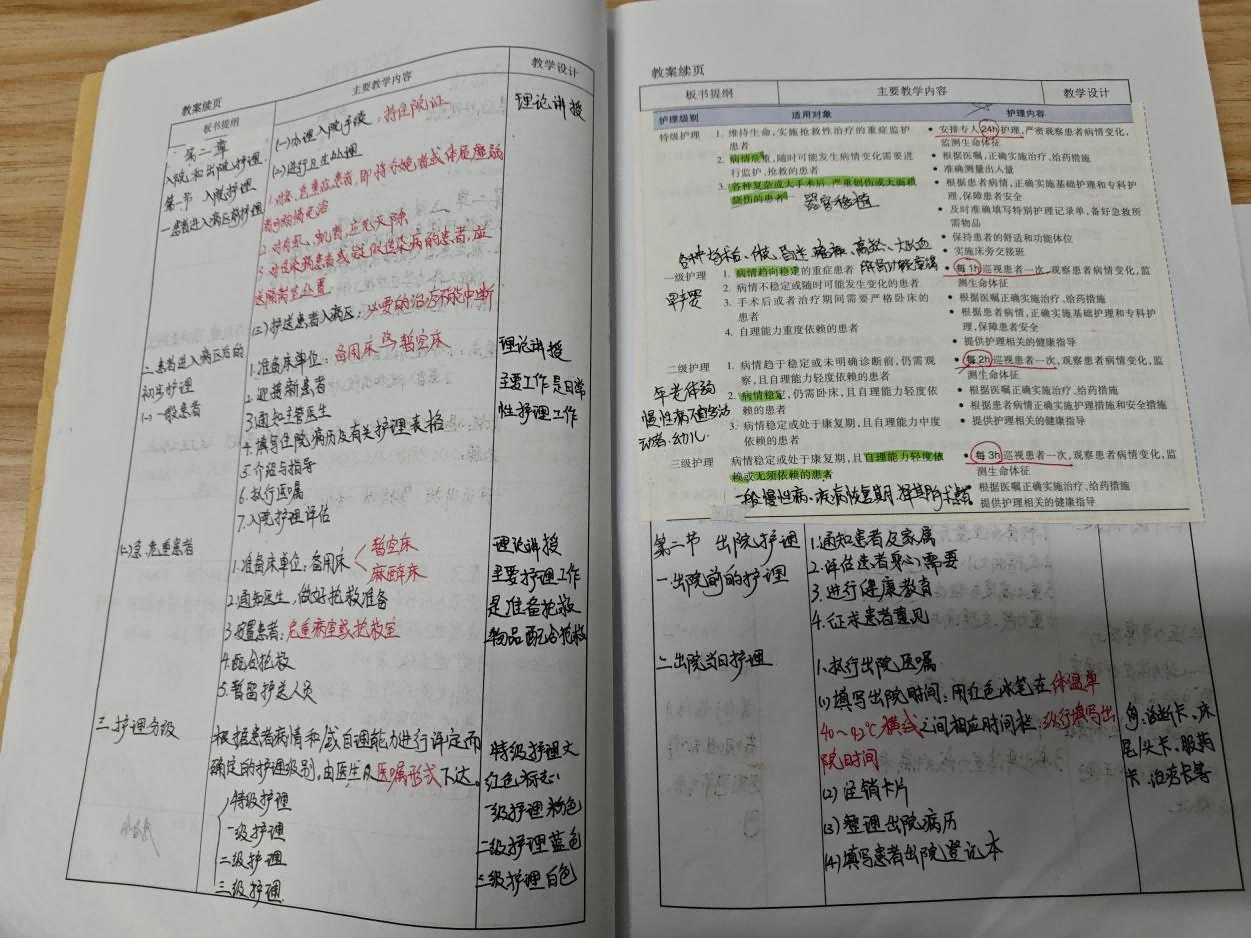 教案续页
板书提纲
主要教学内容
教学设计
第二章
入院和出院护理
第一节 入院护理
一.患者进入病区前护理
(一)办理入院手续:持住院证
(二)进行卫生处理
1.对急、危重症患者,即将分娩者或体质虚弱
者可酌情免浴
2.对有虱、虮者,应先灭除
3.对传染病患者或疑似传染病的患者,应
送隔离室处置
(三)护送患者入病区:必要的治疗不能中断
理论讲授
二.患者进入病区后的
初步护理
(一)一般患者
1.准备床单位:备用床 改 暂空床
2.迎接新患者
3.通知主管医生
4.填写住院病历及有关护理表格
5.介绍与指导
6.执行医嘱
7.入院护理评估
理论讲授
主要工作是日常
性护理工作
(二)急.危重患者
1.准备床单位:备用床 暂空床
麻醉床
2.通知医生,做好抢救准备
3.安置患者:危重病室或抢救室
4.配合抢救
5.暂留护送人员
理论讲授
主要护理工作
是准备抢救
物品配合抢救
三.护理分级
根据患者病情和/或自理能力进行评定而
确定的护理级别,由医生以医嘱形式下达。
特级护理
一级护理
二级护理
三级护理
特级护理
红色标志
一级护理粉色
二级护理蓝色
三级护理白色
教案续页
板书提纲
主要教学内容
教学设计
护理级别
适用对象
护理内容
特级护理
1. 维持生命,实施抢救性治疗的重症监护
患者
2. 病情危重,随时可能发生病情变化需要进
行监护、抢救的患者
3. 各种复杂或大手术后、严重创伤或大面积
烧伤的患者
器官移植
• 安排专人24h护理,严密观察患者病情变化,
监测生命体征
• 根据医嘱,正确实施治疗、给药措施
• 准确测量出入量
• 根据患者病情,正确实施基础护理和专科护
理,保障患者安全
• 及时准确填写特别护理记录单,备好急救所
需物品
• 保持患者的舒适和功能体位
• 实施床旁交接班
各种大手术后、休克、昏迷、瘫痪、高热、大出血
一级护理
早产婴
1. 病情趋向稳定的重症患者
2. 病情不稳定或随时可能发生变化的患者
3. 手术后或者治疗期间需要严格卧床的
患者
4. 自理能力重度依赖的患者
• 每1h巡视患者一次,观察患者病情变化,监
测生命体征
• 根据医嘱正确实施治疗、给药措施
• 根据患者病情,正确实施基础护理和专科护
理,保障患者安全
• 提供护理相关的健康指导
二级护理
年老体弱
慢性病不宜多活
动者.幼儿.
1. 病情趋于稳定或未明确诊断前,仍需观
察,且自理能力轻度依赖的患者
2. 病情稳定,仍需卧床,且自理能力轻度依
赖的患者
3. 病情稳定或处于康复期,且自理能力中度
依赖的患者
• 每2h巡视患者一次,观察患者病情变化,监
测生命体征
• 根据医嘱正确实施治疗、给药措施
• 根据患者病情正确实施护理措施和安全措施
• 提供护理相关的健康指导
三级护理
病情稳定或处于康复期,且自理能力轻度依
赖或无须依赖的患者
一般慢性病、疾病恢复期、择期手术者
• 每3h巡视患者一次,观察患者病情变化,监
测生命体征
• 根据医嘱正确实施治疗、给药措施
• 提供护理相关的健康指导
第二节 出院护理
一.出院前的护理
1.通知患者及家属
2.评估患者身心需要
3.进行健康教育
4.征求患者意见
二.出院当日护理.
1.执行出院医嘱
(1)填写出院时间:用红色水笔在体温单
40~42℃横线之间相应时间栏,纵行填写出
院时间
(2)注销卡片
(3)整理出院病历
(4)填写患者出院登记本
如:诊断卡、床
尾/头卡、服药
卡、治疗卡等